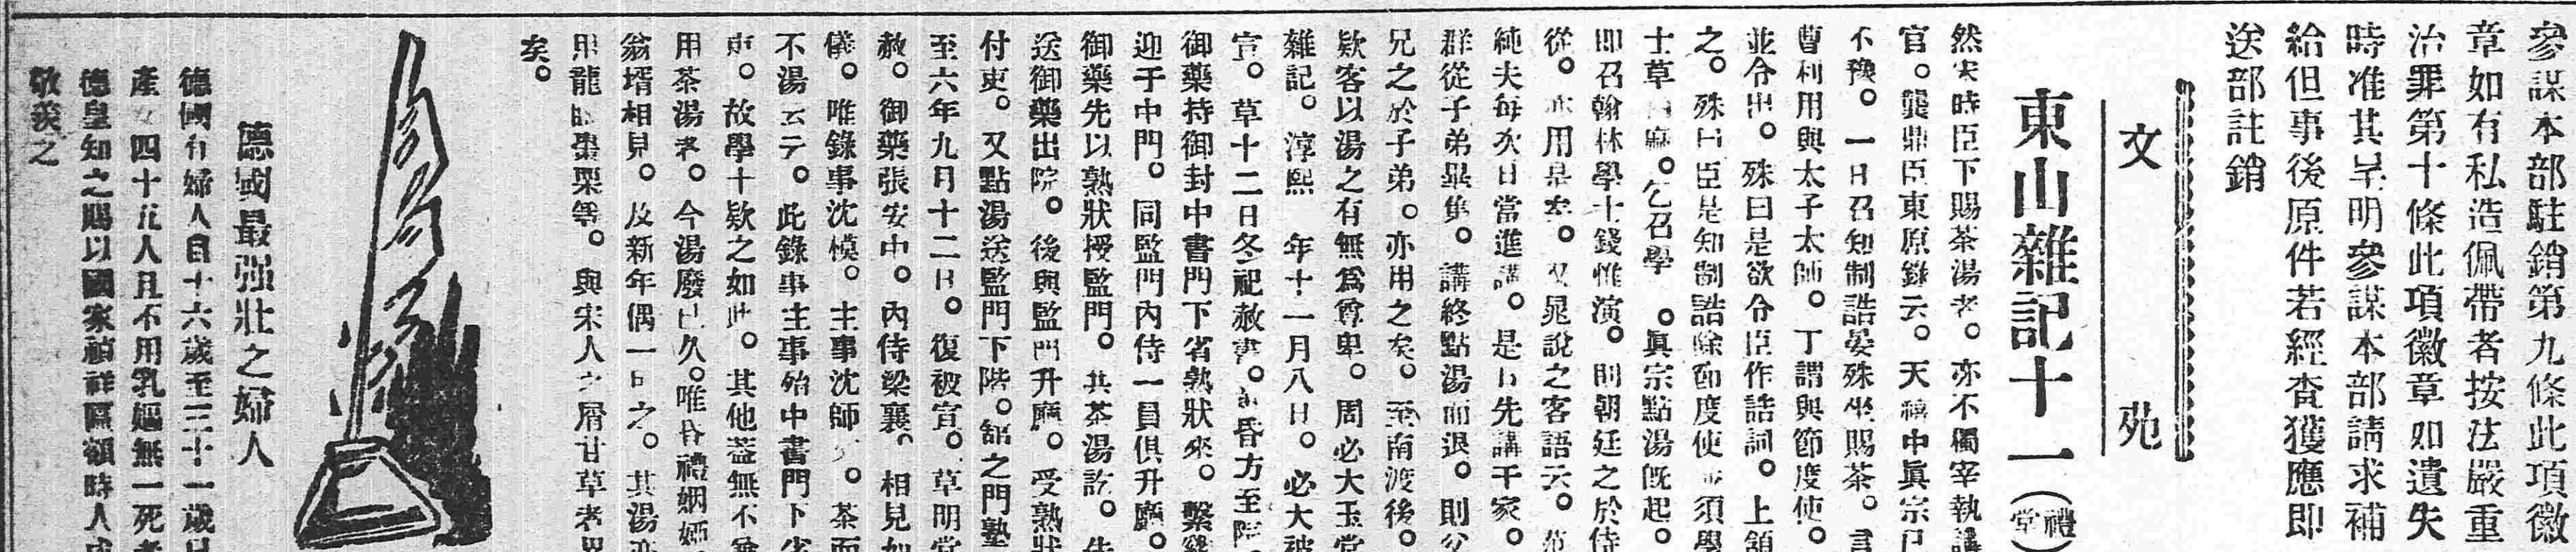 參謀本部駐銷第九條此項徽
章如有私造佩帶者按法嚴重
治罪第十條此項徽章如遺失
時准其呈明參謀本部請求補
給但事後原件若經查獲應即
送部註銷
文苑
東山雜記十一(禮堂)
然宋時臣下賜茶湯者。亦不獨宰執講
官。龔鼎臣東原錄云。天禧中眞宗已
不豫。一日召知制誥晏殊坐賜茶。言
曹利用與太子太師。丁謂與節度使。
並令出。殊曰是欲令臣作誥詞。上頷
之。殊曰臣是知制誥除節度使並須學
士草白麻。乞召學。眞宗點湯旣起。
即召翰林學士錢惟演。則朝廷之於侍
從。亦用是矣。又晁說之客語云。范
純夫每次日當進講。是日先講于家。
群從子弟畢集。講終點湯而退。則父
兄之於子弟。亦用之矣。至南渡後。
欵客以湯之有無爲尊卑。周必大玉堂
雜記。淳熙 年十一月八日。必大被
宣。草十二日冬祀赦書。昏方至院。
御藥持御封中書門下省熟狀來。繫鞋
迎于中門。同監門內侍一員俱升廳。
御藥先以熟狀授監門。共茶湯訖。先
送御藥出院。後與監門升廳。受熟狀
付吏。又點湯送監門下階。舘之門塾
至六年九月十二日。復被宣。草明堂
赦。御藥張安中。內侍梁襄。相見如
儀。唯錄事沈模。主事沈師。茶而
不湯云云。此錄事主事殆中書門下省
吏。故學士欵之如此。其他蓋無不兼
用茶湯者。今湯廢已久。唯昏禮姻婭
翁壻相見。及新年偶一用之。其湯亦
用龍眼棗栗等。與宋人之屑甘草者異
矣。
德國最强壯之婦人
德國有婦人自十六歲至三十一歲已
產女四十五人且不用乳嫗無一死者
德皇知之賜以國家禎祥匾額時人咸
敬羨之